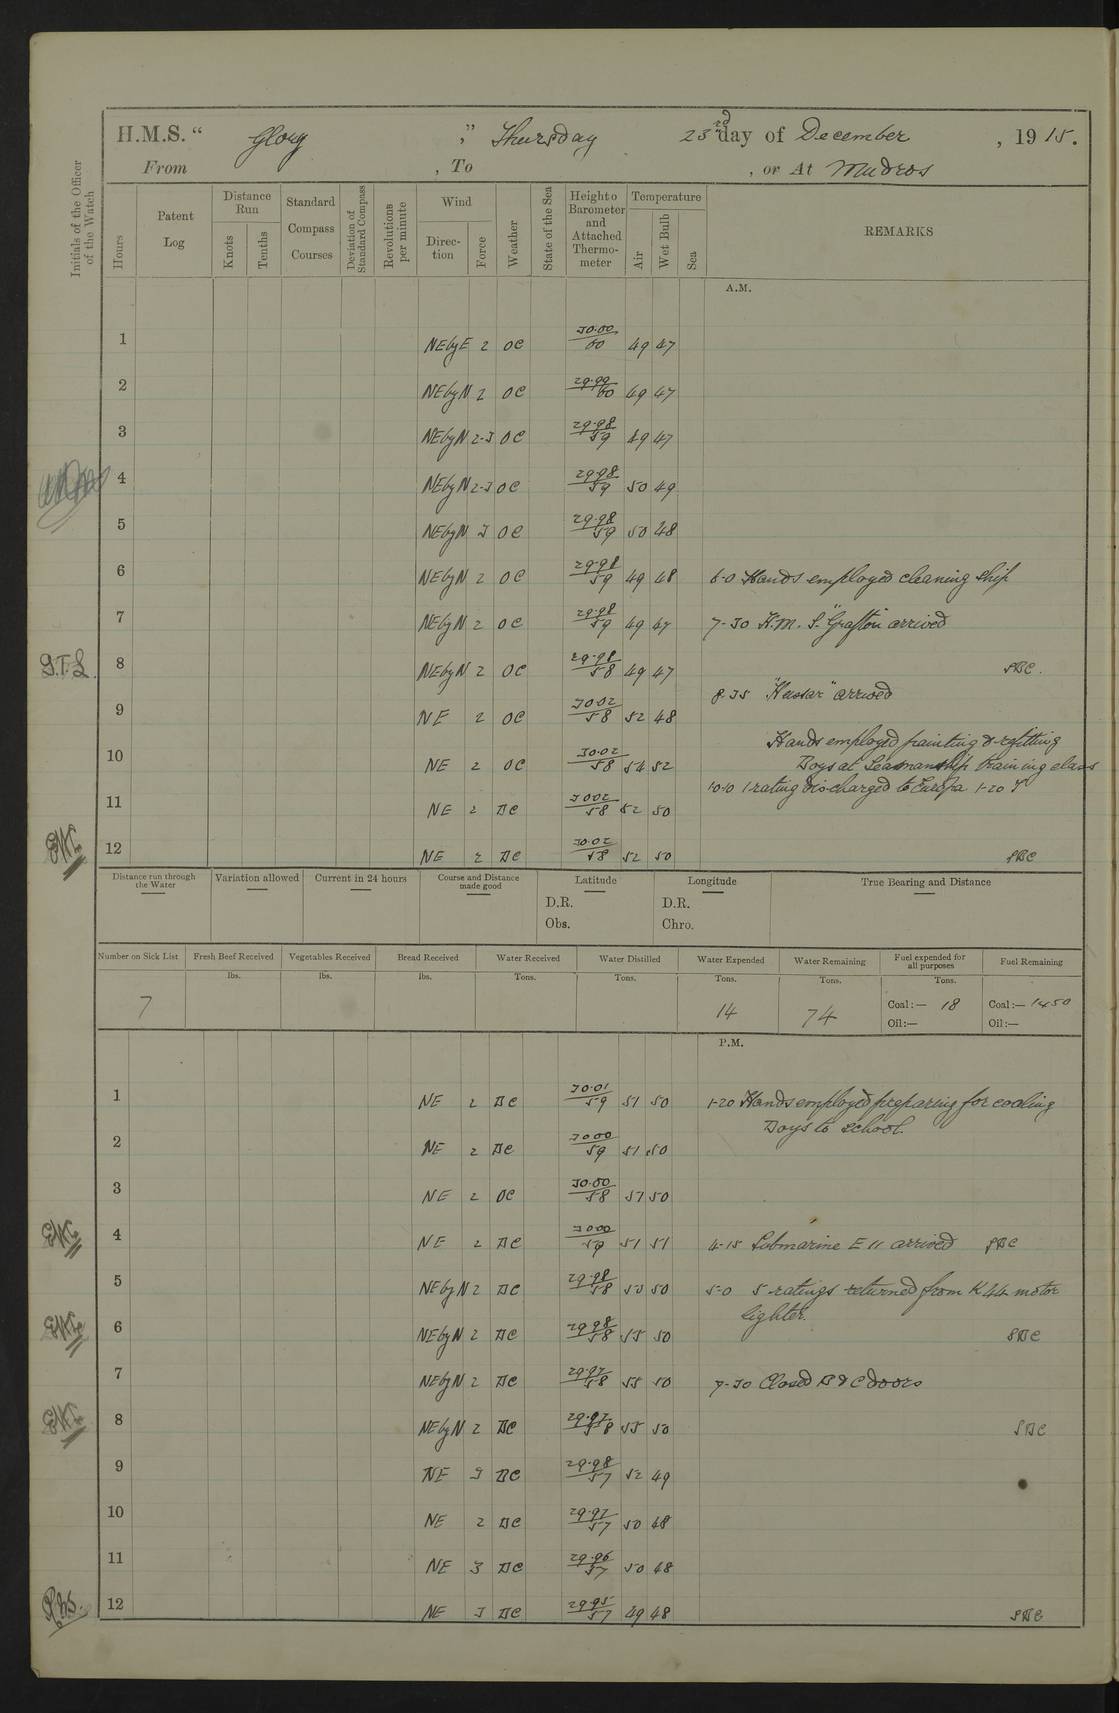 H.M.S. “ Glory ,” Thursday 23rd day of December , 1915.
From , To , or At Mudros
Initials of the Officer of the Watch
Hours
Patent Log
Distance Run
Knots
Tenths
Standard Compass Courses
Deviation of Standard Compass
Revolutions per minute
Wind
Direction
Force
Weather
State of the Sea
Height of Barometer and Attached Thermometer
Temperature
Air
Wet Bulb
Sea
REMARKS
A.M.
1 NEbyE 2 OC 30.00/60 49 47
2 NEbyN 2 OC 29.99/60 49 47
3 NEbyN 2-3 OC 29.98/59 49 47
4 NEbyN 2-3 OC 29.98/59 50 49
5 NEbyN 3 OC 29.98/59 50 48
6 NEbyN 2 OC 29.98/59 49 48 6-0 Hands employed cleaning ship
7 NEbyN 2 OC 29.98/59 49 47 7-30 H.M.S. "Grafton arrived
D.T.L. 8 NEbyN 2 OC 29.98/58 49 47 SBC.
8.35 "Hussar" arrived
9 NE 2 OC 30.02/58 52 48
Hands employed painting & refitting
10 NE 2 OC 30.02/58 54 52 Boys at Seamanship training class
10-10 1 rating discharged to Europa 1-20 T
11 NE 2 BC 30.02/58 52 50
12 NE 2 BC 30.02/58 52 50 SBC
Distance run through the Water
Variation allowed
Current in 24 hours
Course and Distance made good
Latitude
D.R.
Obs.
Longitude
D.R.
Chro.
True Bearing and Distance
Number on Sick List Fresh Beef Received Vegetables Received Bread Received Water Received Water Distilled Water Expended Water Remaining Fuel expended for all purposes Fuel Remaining
lbs. lbs. lbs. Tons. Tons. Tons. Tons. Tons.
7 14 74 Coal:— 18 Coal:— 1450
Oil:— Oil:—
P.M.
1 NE 2 BC 30.01/59 51 50 1-20 Hands employed preparing for coaling
Boys to school.
2 NE 2 BC 30.00/59 51 50
3 NE 2 OC 30.00/58 57 50
4 NE 2 BC 30.00/59 51 51 4-15 Submarine E 11 arrived SBC
5 NEbyN 2 BC 29.98/58 53 50 5-0 5 ratings returned from K44 motor
lighter.
6 NEbyN 2 BC 29.98/58 55 50 SBC
7 NEbyN 2 BC 29.97/58 55 50 7-30 Closed B & C doors
8 NEbyN 2 BC 29.97/58 55 50 SBC
9 NE 3 BC 29.98/57 52 49
10 NE 2 BC 29.97/57 50 48
11 NE 3 BC 29.96/57 50 48
12 NE 3 BC 29.95/57 49 48 SBC